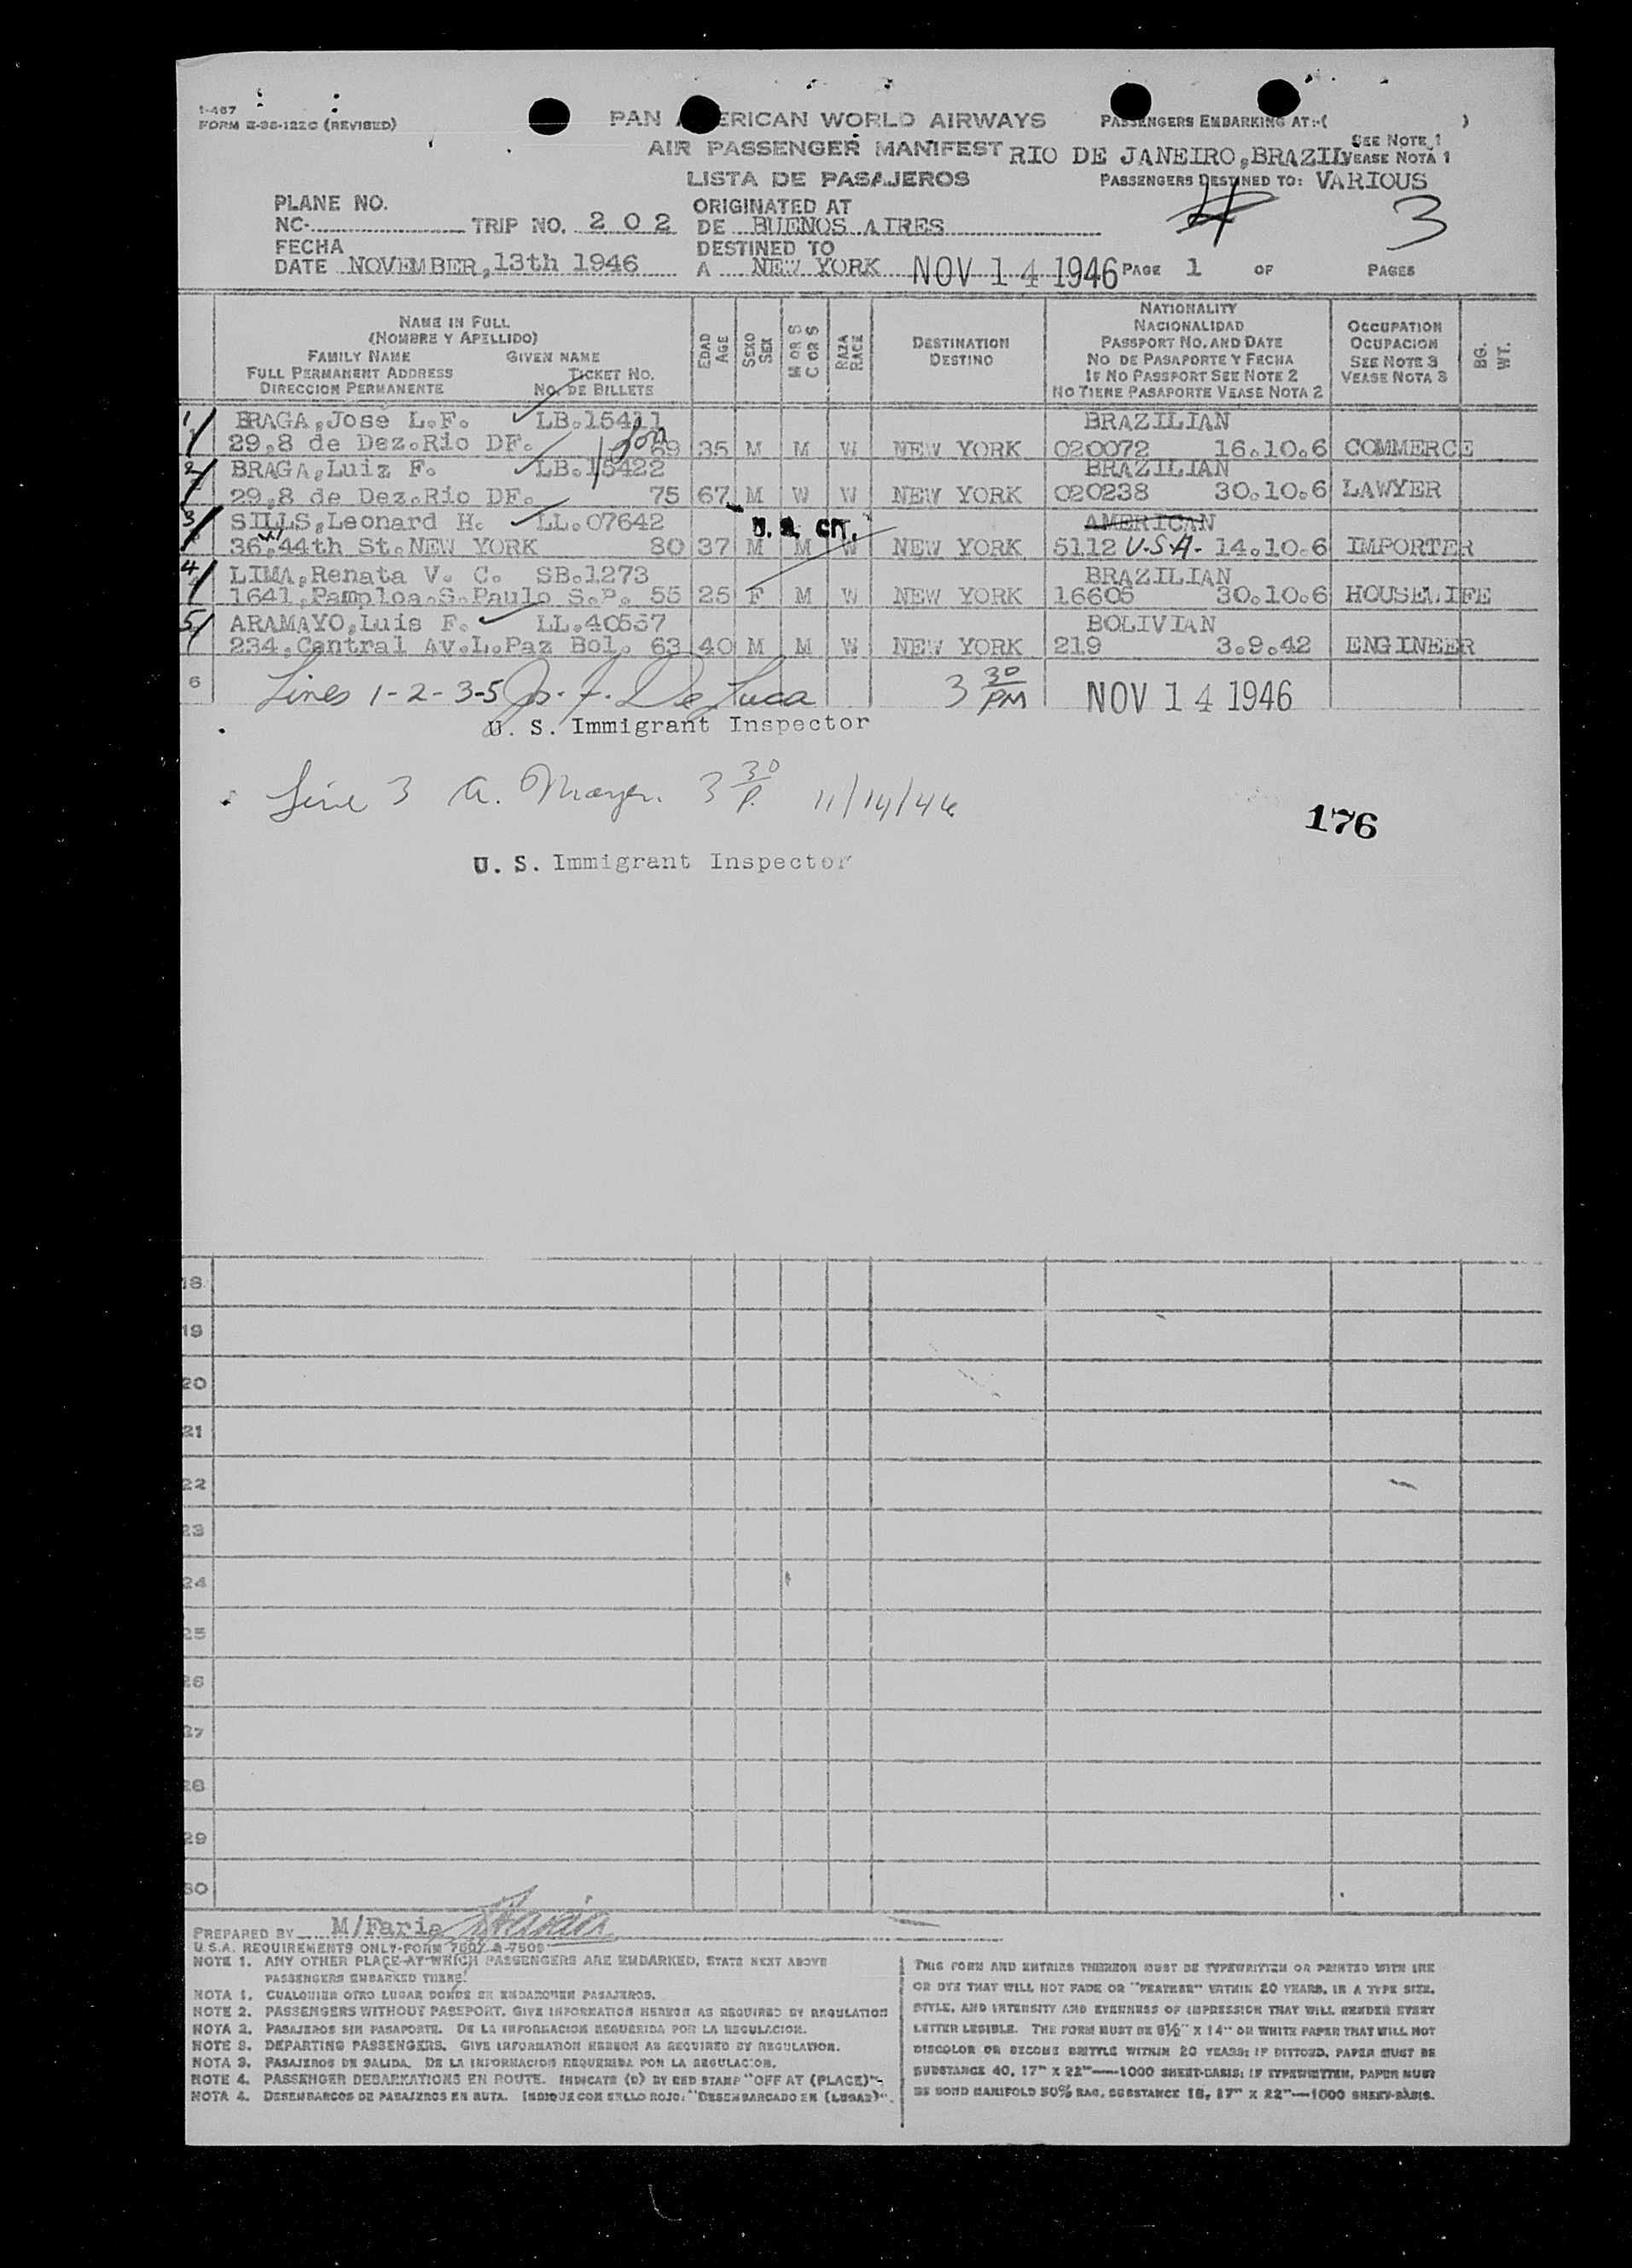 1-467
FORM E-36-122C (REVISED)
PAN AMERICAN WORLD AIRWAYS
AIR PASSENGER MANIFEST
LISTA DE PASAJEROS
PASSENGERS EMBARKING AT:-( )
SEE NOTE 1
RIO DE JANEIRO,BRAZIL VEASE NOTA 1
PASSENGERS DESTINED TO: VARIOUS
4 3
PLANE NO.
NC- TRIP NO. 2 0 2
ORIGINATED AT
DE BUENOS AIRES
FECHA
DATE NOVEMBER,13th 1946
DESTINED TO
A NEW YORK NOV 14 1946 PAGE 1 OF PAGES
NAME IN FULL
(NOMBRE Y APELLIDO)
FAMILY NAME GIVEN NAME
FULL PERMANENT ADDRESS TICKET NO.
DIRECCION PERMANENTE NO. DE BILLETE
EDAD AGE
SEXO SEX
M OR S C OR S
RAZA RACE
DESTINATION
DESTINO
NATIONALITY
NACIONALIDAD
PASSPORT NO. AND DATE
NO DE PASAPORTE Y FECHA
IF NO PASSPORT SEE NOTE 2
NO TIENE PASAPORTE VEASE NOTA 2
OCCUPATION
OCUPACION
SEE NOTE 3
VEASE NOTA 3
BG. WT.
1 BRAGA,José L.F. LB.15411 BRAZILIAN
29,8 de Dez.Rio DF. son 69 35 M M W NEW YORK 020072 16.10.6 COMMERCE
2 BRAGA,Luiz F. LB.15422 BRAZILIAN
29,8 de Dez.Rio DF. 75 67 M W W NEW YORK 020238 30.10.6 LAWYER
3 SILLS,Leonard H. LL.07642 U. S. CIT. AMERICAN
36,W 44th St.NEW YORK 80 37 M M W NEW YORK 5112 U.S.A. 14.10.6 IMPORTER
4 LIMA,Renata V. C. SB.1273 BRAZILIAN
1641,Pamploa.S.Paulo S.P. 55 25 F M W NEW YORK 16605 30.10.6 HOUSEWIFE
5 ARAMAYO,Luis F. LL.40567 BOLIVIAN
234,Cantral Av.L.Paz Bol. 63 40 M M W NEW YORK 219 3.9.42 ENGINEER
6 Lines 1-2-3-5 Jos. F. De Luca 3 30 PM NOV 14 1946
U. S. Immigrant Inspector
Line 3 A. Mayer. 3 30 P. 11/14/46
176
U. S. Immigrant Inspector
18
19
20
21
22
23
24
25
26
27
28
29
30
PREPARED BY M/Faria Faria
U.S.A. REQUIREMENTS ONLY-FORM 7507 & 7509
NOTE 1. ANY OTHER PLACE AT WHICH PASSENGERS ARE EMBARKED, STATE NEXT ABOVE
PASSENGERS EMBARKED THERE.
NOTA 1. CUALQUIER OTRO LUGAR DONDE SE EMBARQUEN PASAJEROS.
NOTE 2. PASSENGERS WITHOUT PASSPORT. GIVE INFORMATION HEREON AS REQUIRED BY REGULATION
NOTA 2. PASAJEROS SIN PASAPORTE. DE LA INFORMACION REQUERIDA POR LA REGULACION.
NOTE 3. DEPARTING PASSENGERS. GIVE INFORMATION HEREON AS REQUIRED BY REGULATION.
NOTA 3. PASAJEROS DE SALIDA. DE LA INFORMACION REQUERIDA POR LA REGULACION.
NOTE 4. PASSENGER DEBARKATIONS EN ROUTE. INDICATE (D) BY RED STAMP "OFF AT (PLACE)"
NOTA 4. DESEMBARCOS DE PASAJEROS EN RUTA. INDIQUE CON SELLO ROJO: "DESEMBARCADO EN (LUGAR)".
THIS FORM AND ENTRIES THEREON MUST BE TYPEWRITTEN OR PRINTED WITH INK
OR DYE THAT WILL NOT FADE OR "FEATHER" WITHIN 20 YEARS, IN A TYPE SIZE,
STYLE, AND INTENSITY AND EVENNESS OF IMPRESSION THAT WILL RENDER EVERY
LETTER LEGIBLE. THE FORM MUST BE 8½" X 14" ON WHITE PAPER THAT WILL NOT
DISCOLOR OR BECOME BRITTLE WITHIN 20 YEARS; IF DITTOED, PAPER MUST BE
SUBSTANCE 40, 17" X 22"—1000 SHEET-BASIS; IF TYPEWRITTEN, PAPER MUST
BE BOND MANIFOLD 50% RAG, SUBSTANCE 18, 17" X 22"—1000 SHEET-BASIS.